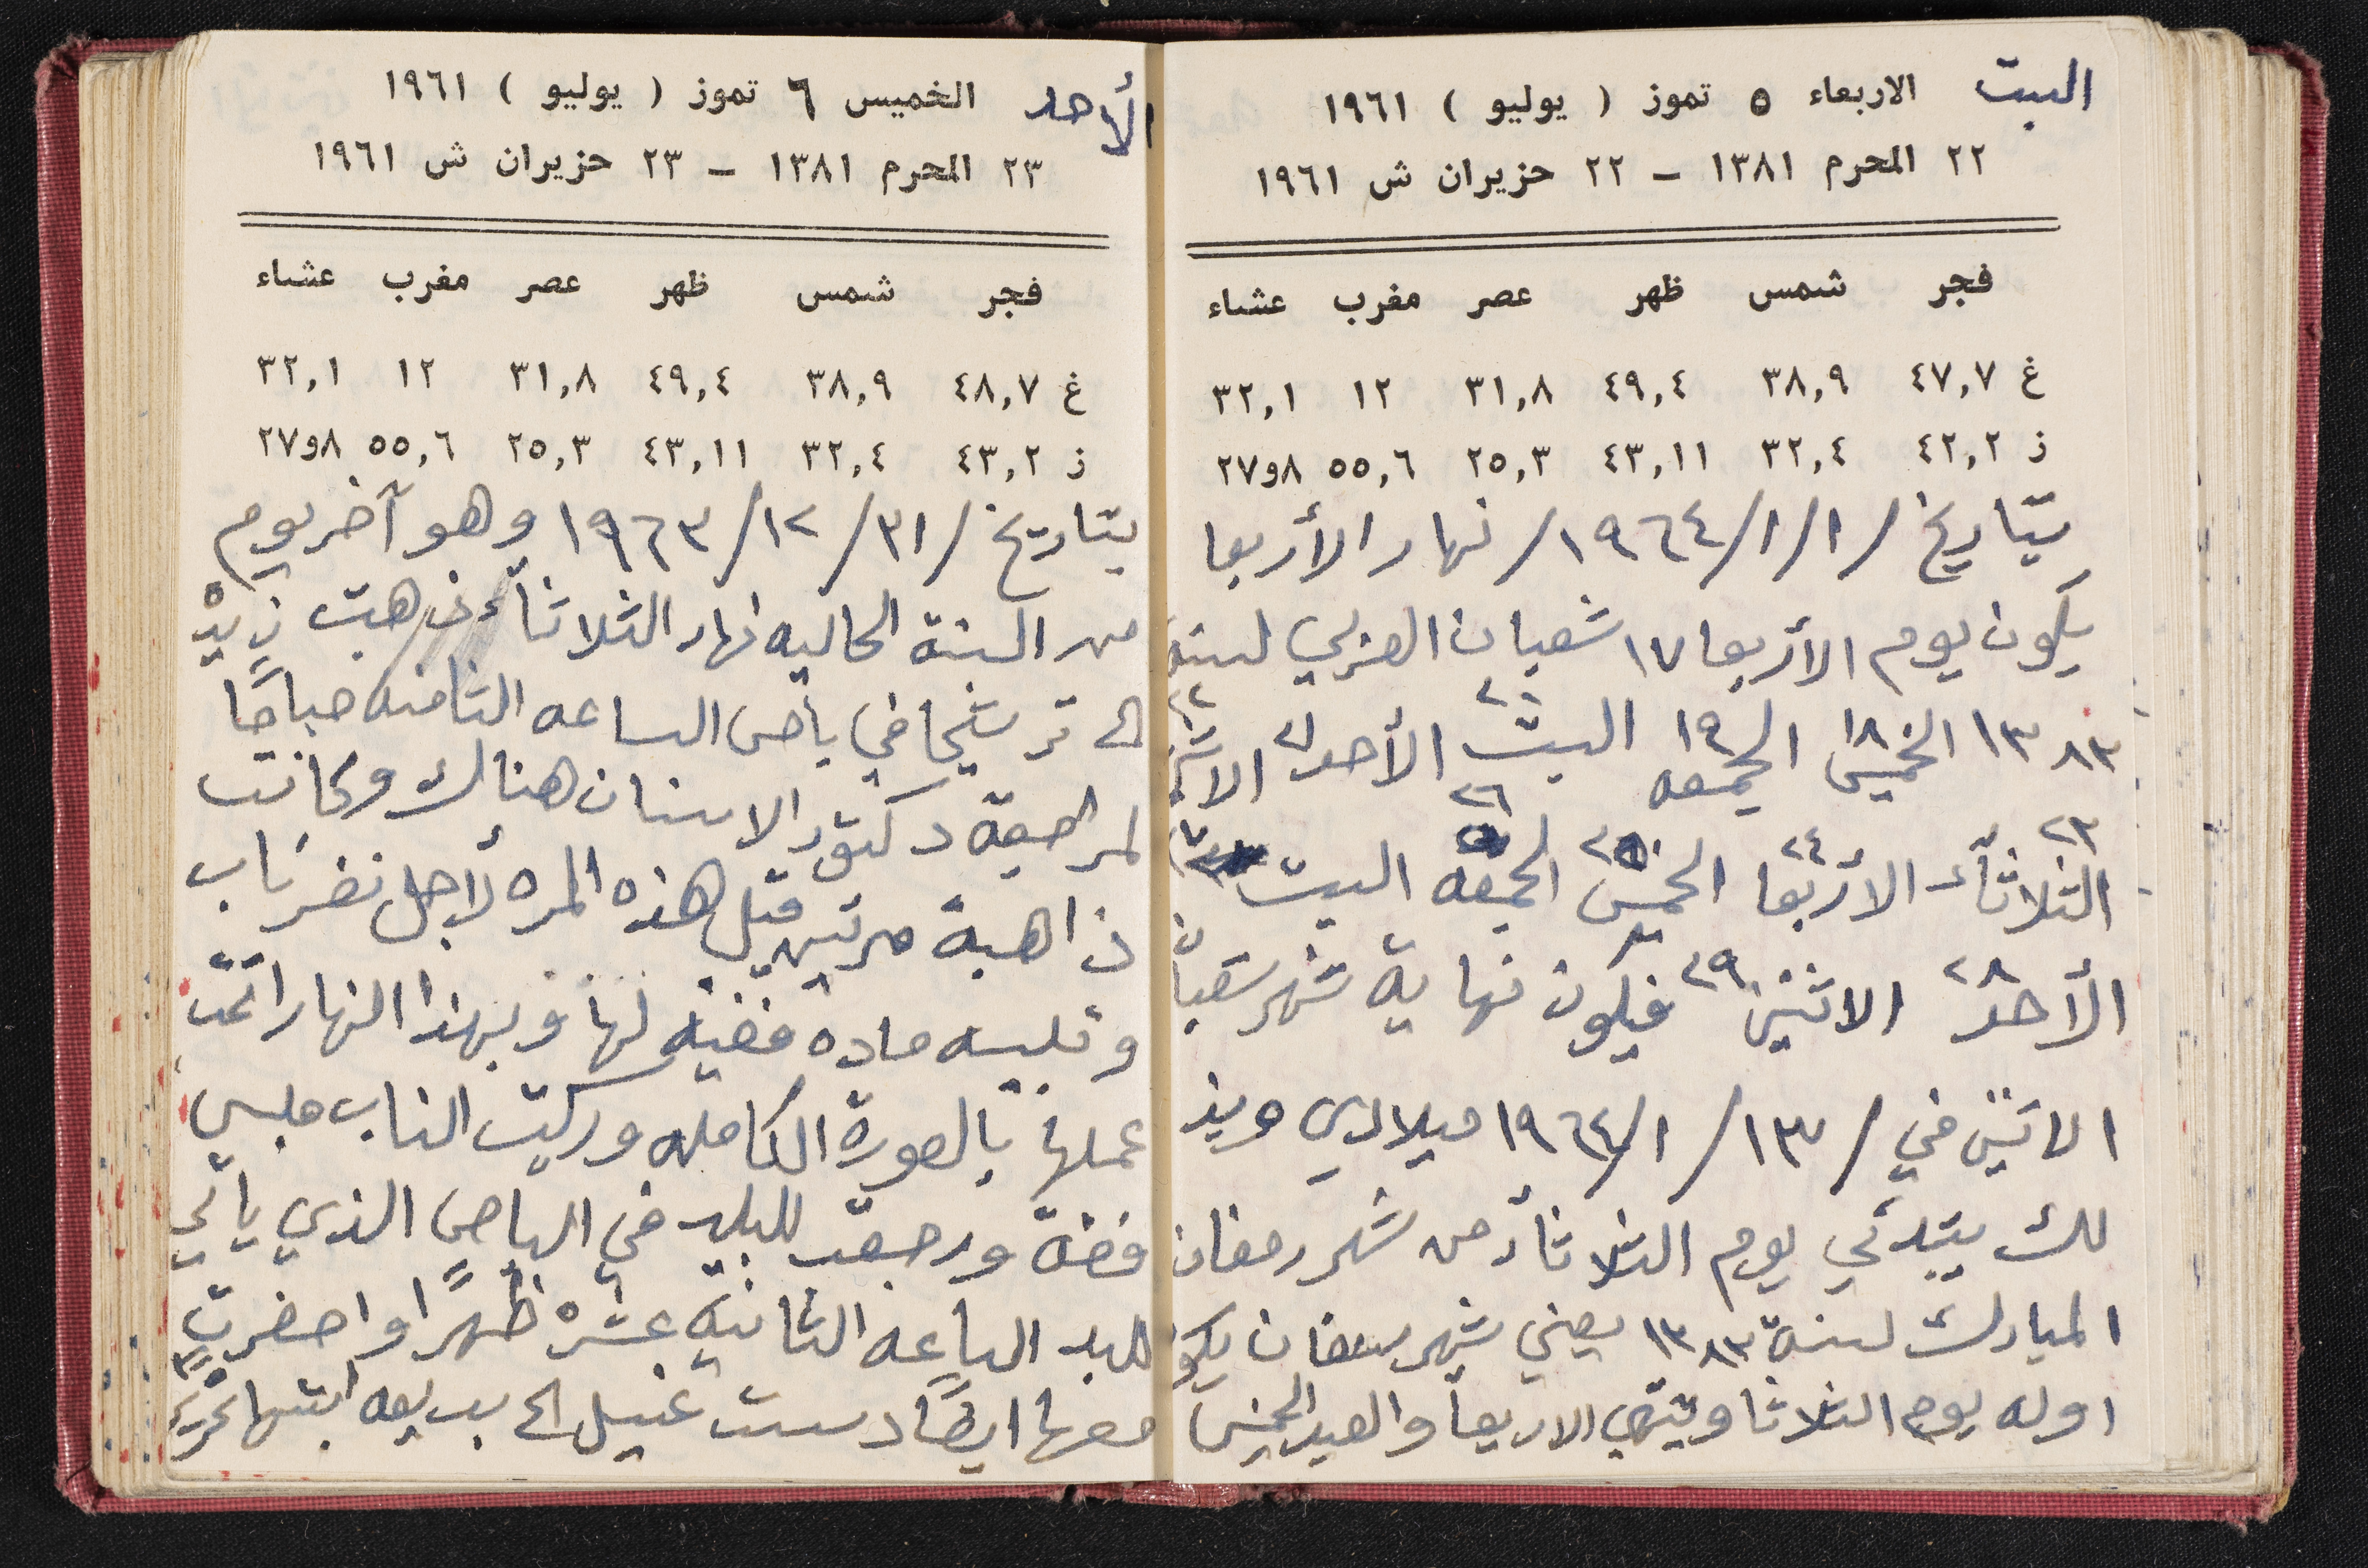 السبت الاربعاء ٥ تموز ( يوليو ) ١٩٦١
٢٢ المحرم ١٣٨١ – ٢٢ حزيران ش ١٩٦١
فجر شمس ظهر عصر مغرب عشاء
غ ٤٧,٧ ٣٨,٩ ٤٩,٤ ٣١,٨ ١٢ ٣٢,١
ز ٤٢,٢ ٣٢,٤ ٤٣,١١ ٢٥,٣ ٥٥,٦ ٨و٢٧
بتاريخ /١/١/١٩٦٤/ نهار الأربعا
يكون يوم الأربعا ١٧ شعبان العربي لسنة
١٣٨٣ الخميس ١٨ الجمعه ١٩ السبت ٢٠ الأحد ٢١ ٢٢
الثلاثاء ٢٣ الأربعا ٢٤ الخميس ٢٥ الجمعه ٢٦ السبت
الأحد ٢٨ الاثنين ٢٩ فيكون نهاية شهر شعبان
الاثنين في /١٣/١/١٩٦٤ ميلادي وبذ
لك يبتدئي يوم الثلاثاء من شهر رمضان
المبارك لسنة ١٣٨٣ يعني شهر رمضان يكو
اوله يوم الثلاثا وينتهي الاربعا والعيد الخميس
الأحد الخميس ٦ تموز ( يوليو ) ١٩٦١
٢٣ المحرم ١٣٨١ – ٢٣ حزيران ش ١٩٦١
فجر شمس ظهر عصر مغرب عشاء
غ ٤٨,٧ ٣٨,٩ ٤٩,٤ ٣١,٨ ١٢ ٣٢,١
ز ٤٣,٢ ٣٢,٤ ٤٣,١١ ٢٥,٣ ٥٥,٦ ٨و٢٧
بتاريخ /٣١/١٢/١٩٦٣ وهو آخر يوم
من السنة الحاليه نهار الثلاثاء ذهبت
الى ترشيحا في باص الساعه الثامنه صباحًا
لمراجعة دكتور الاسنان هناك وكانت
ذاهبة مرتين قبل هذه المره لأجل ناب
وتلبيسه ماده فضيه لها وبهذا النهار اتمّت
عملها بالصورة الكامله وركبت الناب ملبس
فضة ورجعت للبلد في الباص الذي يأتي
للبلد الساعه الثانية عشره ظهرًا واحضرت
معها ايضًا دست غسيل الى بديعه ابنتها